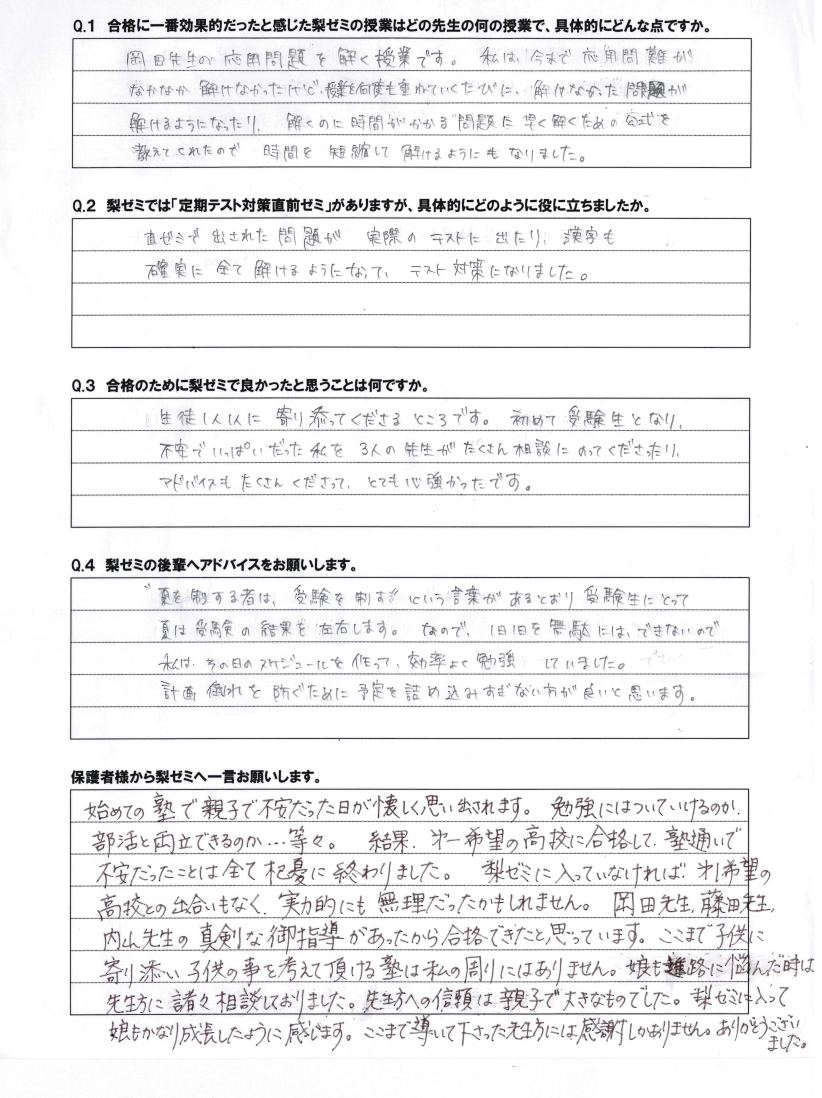 Q.1 合格に一番効果的だったと感じた梨ゼミの授業はどの先生の何の授業で、具体的にどんな点ですか。
岡田先生の応用問題を解く授業です。私は、今まで応用問難が
なかなか解けなかったけど、授業を何度も重ねていくたびに、解けなかった問題が
解けるようになったり、解くのに時間がかかる問題に早く解くための公式を
教えてくれたので時間を短縮して解けるようにもなりました。
Q.2 梨ゼミでは「定期テスト対策直前ゼミ」がありますが、具体的にどのように役に立ちましたか。
直ゼミで出された問題が実際のテストに出たり、漢字も
確実に全て解けるようになって、テスト対策になりました。
Q.3 合格のために梨ゼミで良かったと思うことは何ですか。
生徒1人1人に寄り添ってくださるところです。初めて受験生となり、
不安でいっぱいだった私を3人の先生がたくさん相談にのってくださったり、
アドバイスもたくさんくださって、とても心強かったです。
Q.4 梨ゼミの後輩へアドバイスをお願いします。
"夏を制する者は、受験を制す"という言葉があるとおり受験生にとって
夏は受験の結果を左右します。なので、1日1日を無駄には、できないので
私は、その日のスケジュールを作って、効率よく勉強していました。
計画倒れを防ぐために予定を詰め込みすぎない方が良いと思います。
保護者様から梨ゼミへ一言お願いします。
始めての塾で親子で不安だった日が懐しく思い出されます。勉強にはついていけるのか、
部活と両立できるのか…等々。結果、第一希望の高校に合格して、塾通いで
不安だったことは全て杞憂に終わりました。梨ゼミに入っていなければ、第1希望の
高校との出合いもなく、実力的にも無理だったかもしれません。岡田先生、藤田先生、
内山先生の真剣な御指導があったから合格できたと思っています。ここまで子供に
寄り添い子供の事を考えて頂ける塾は私の周りにはありません。娘も進路に悩んだ時は
先生方に諸々相談しておりました。先生方への信頼は親子で大きなものでした。梨ゼミに入って
娘もかなり成長したように感じます。ここまで導いて下さった先生方には感謝しかありません。ありがとうござい
ました。